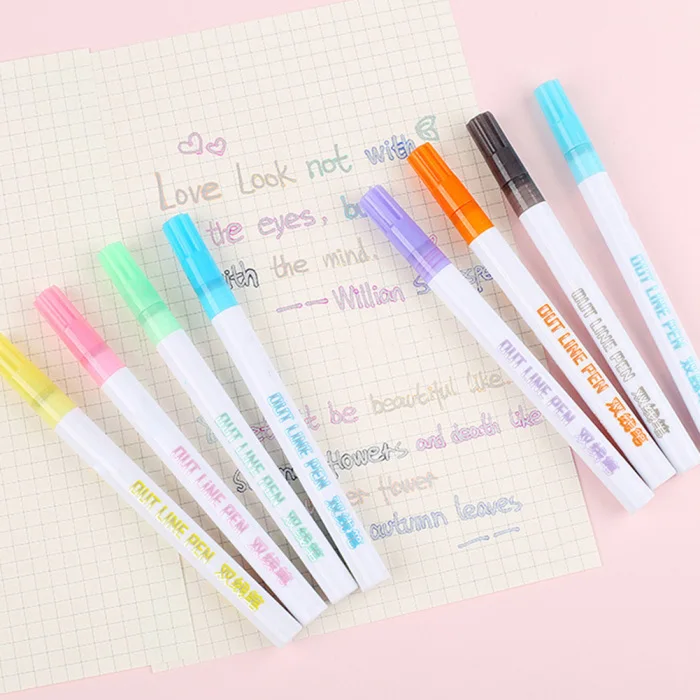 Love Look not with
the eyes, but
with the mind.
Willian
be beautiful like
flowers and death like
autumn leaves
OUT LINE PEN 双线笔
OUT LINE PEN 双线笔
OUT LINE PEN 双线笔
OUT LINE PEN 双线笔
OUT LINE PEN 双线笔
OUT LINE PEN 双线笔
OUT LINE PEN 双线笔
OUT LINE PEN